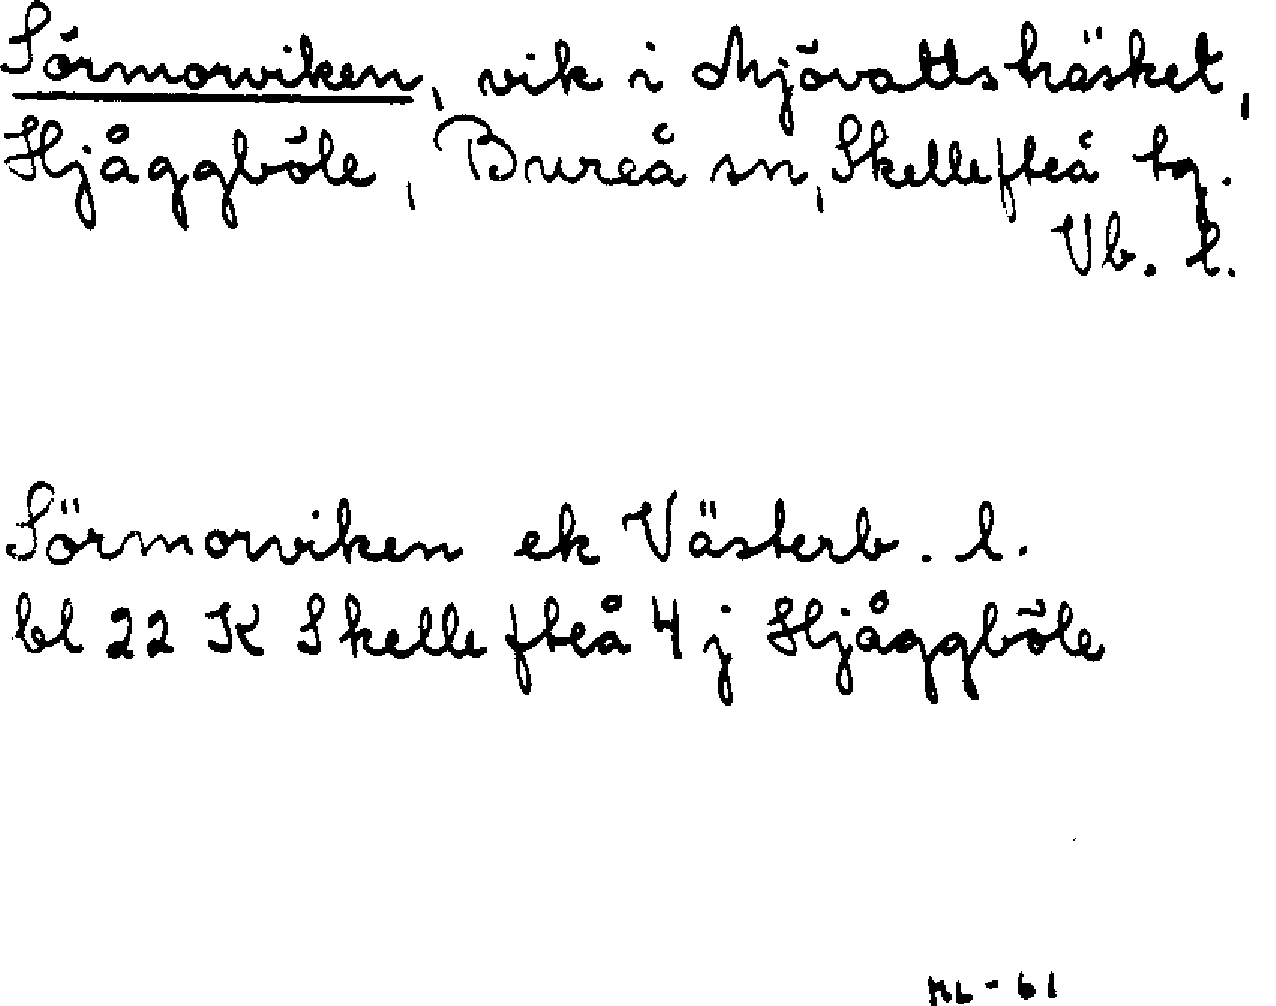 Sörmorviken, vik i Mjövattsträsket,
Hjåggböle, Bureå sn, Skellefteå tg.
Vb. l.
Sörmorviken ek Västerb. l.
bl 22 K Skellefteå 4 j Hjåggböle